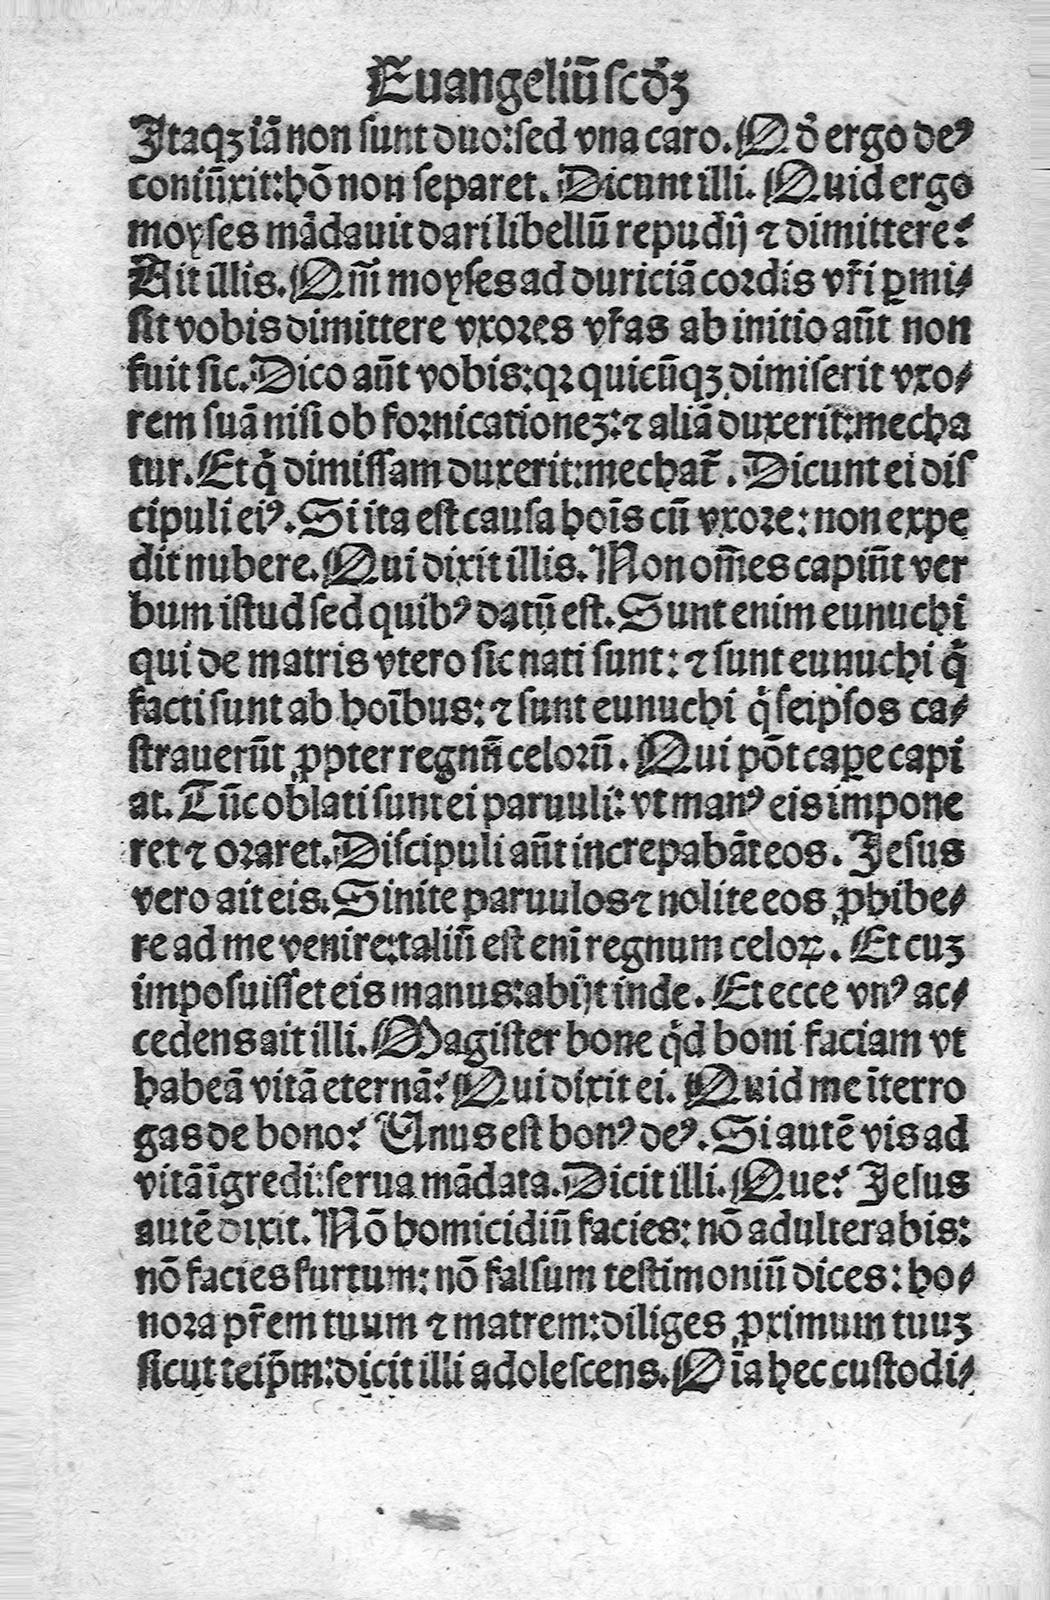 Euangeliū ſcđꝫ
Itaqꝫ iā non ſunt duo: ſed vna caro. Qđ ergo deꝰ
coniūxit: hō non ſeparet. Dicunt illi. Quid ergo
moyſes mādauit dari libellū repudij ⁊ dimittere?
Ait illis. Qm̄ moyſes ad duriciā cordis vr̄i ꝑmi⸗
ſit vobis dimittere vxores vr̄as ab initio aūt non
fuit ſic. Dico aūt vobis: qꝛ quicūqꝫ dimiſerit vxo⸗
rem ſuā niſi ob fornicationeꝫ: ⁊ aliā duxerit: mecha
tur. Et q̇ dimiſſam duxerit: mechat᷑. Dicunt ei diſ
cipuli eiꝰ. Si ita eſt cauſa hoīs cū vxore: non expe
dit nubere. Qui dixit illis. Non om̄es capiūt ver
bum iſtud ſed quibꝰ datū eſt. Sunt enim eunuchi
qui de matris vtero ſic nati ſunt: ⁊ ſunt eunuchi q̇
facti ſunt ab hoībus: ⁊ ſunt eunuchi q̇ ſeipſos ca⸗
ſtrauerūt ꝓpter regnū celorū. Qui pōt caꝑe capi
at. Tūc oblati ſunt ei paruuli: vt manꝰ eis impone
ret ⁊ oraret. Diſcipuli aūt increpabāt eos. Jeſus
vero ait eis. Sinite paruulos ⁊ nolite eos ꝓhibe⸗
re ad me venire: taliū eſt eni regnum celoꝝ. Et cuꝫ
impoſuiſſet eis manus: abijt inde. Et ecce vnꝰ ac⸗
cedens ait illi. Magiſter bone q̇d boni faciam vt
habeā vitā eternā? Qui dixit ei. Quid me īterro
gas de bono? Unus eſt bonꝰ deꝰ. Si autē vis ad
vitā īgredi: ſerua mādata. Dicit illi. Que? Jeſus
autē dixit. Nō homicidiū facies: nō adulterabis:
nō facies furtum: nō falſum teſtimoniū dices: ho⸗
nora pr̄em tuum ⁊ matrem: diliges ꝓximum tuuꝫ
ſicut teip̄m: dicit illi adoleſcens. Oīa hec cuſtodi⸗